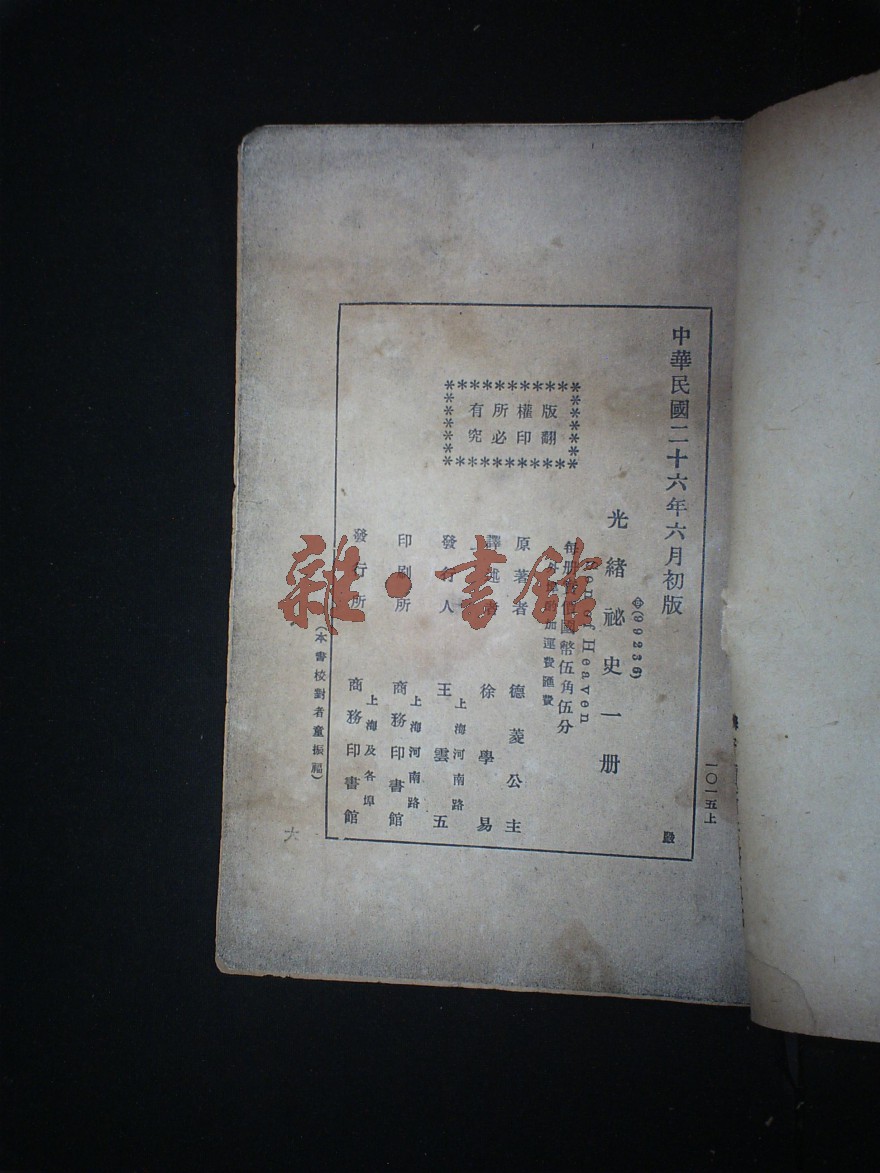 中華民國二十六年六月初版
(99236)
光緒祕史一册
Son of Heaven
每册實價國幣伍角伍分
外埠酌加運費匯費
原著者 德菱公主
譯述者 徐學易
發行人 王雲五
上海河南路
印刷所 商務印書館
上海河南路
發行所 商務印書館
上海及各埠
版權所有
翻印必究
(本書校對者童振福)
一〇一五上
殿
大
雜·書館